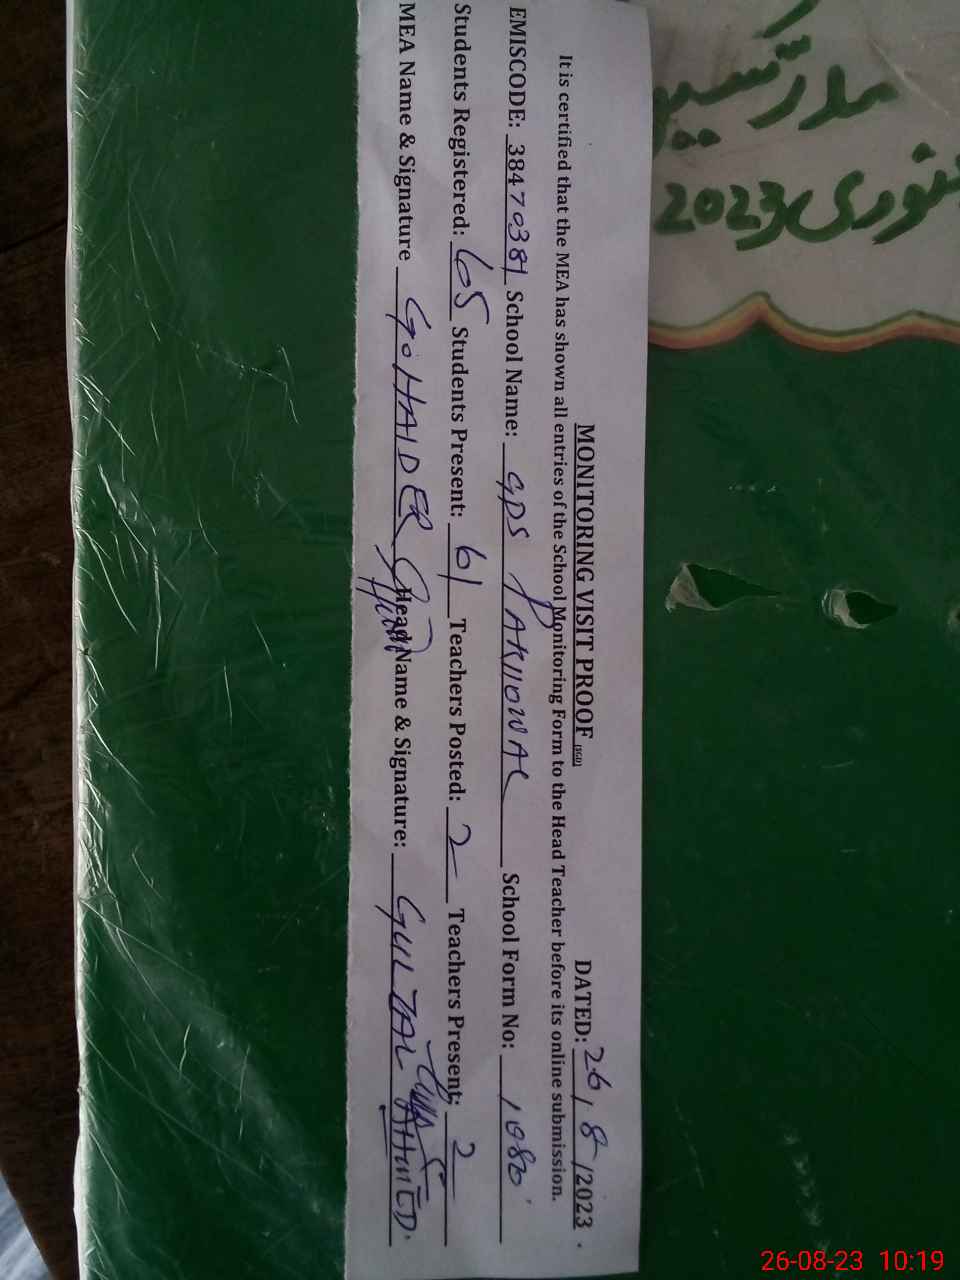 MONITORING VISIT PROOF (SGD) DATED: 26/8/2023.
It is certified that the MEA has shown all entries of the School Monitoring Form to the Head Teacher before its online submission.
EMISCODE: 38470381 School Name: GPS PAKHOWAL School Form No: 1080
Students Registered: 65 Students Present: 61 Teachers Posted: 2 Teachers Present: 2
MEA Name & Signature G. HAIDER Head Name & Signature: AHMED.
2023
26-08-23 10:19